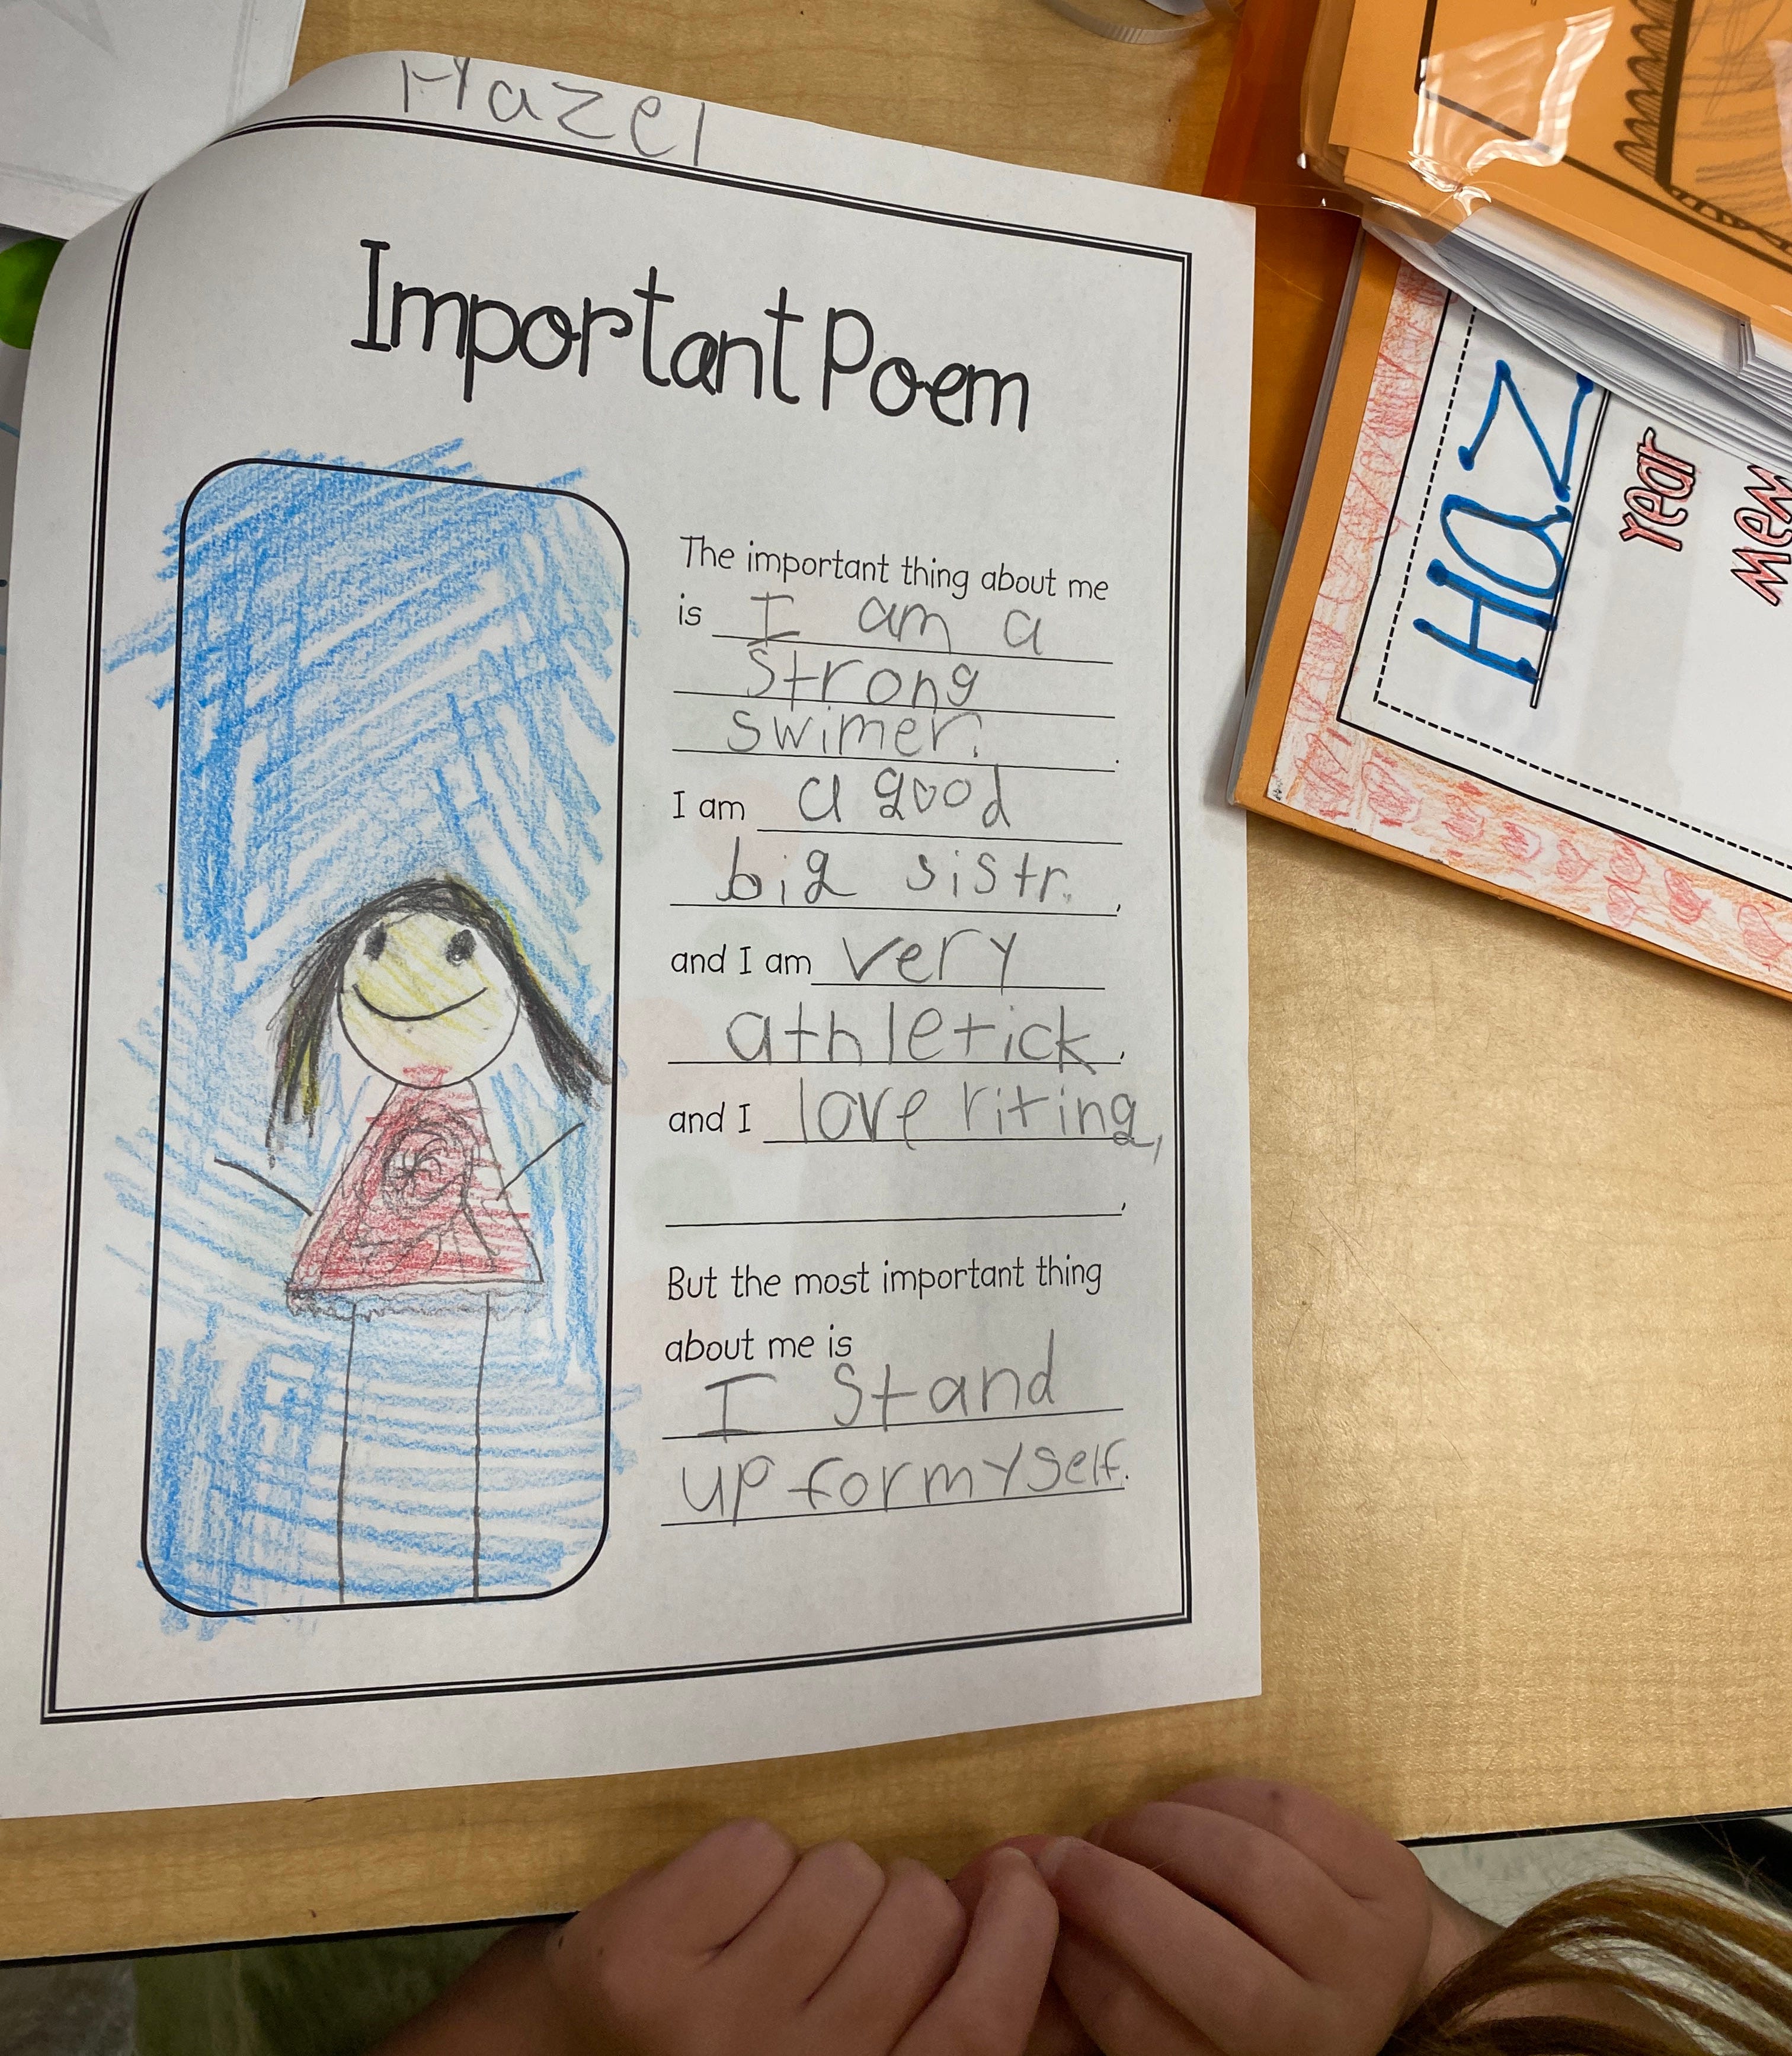 Hazel
Important Poem
The important thing about me
is I am a
strong
swimer.
.
I am a good
big sistr.
,
and I am very
athletick.
,
and I love riting,
,
But the most important thing
about me is
I stand
up for myself.
HAZ
Year
Mem